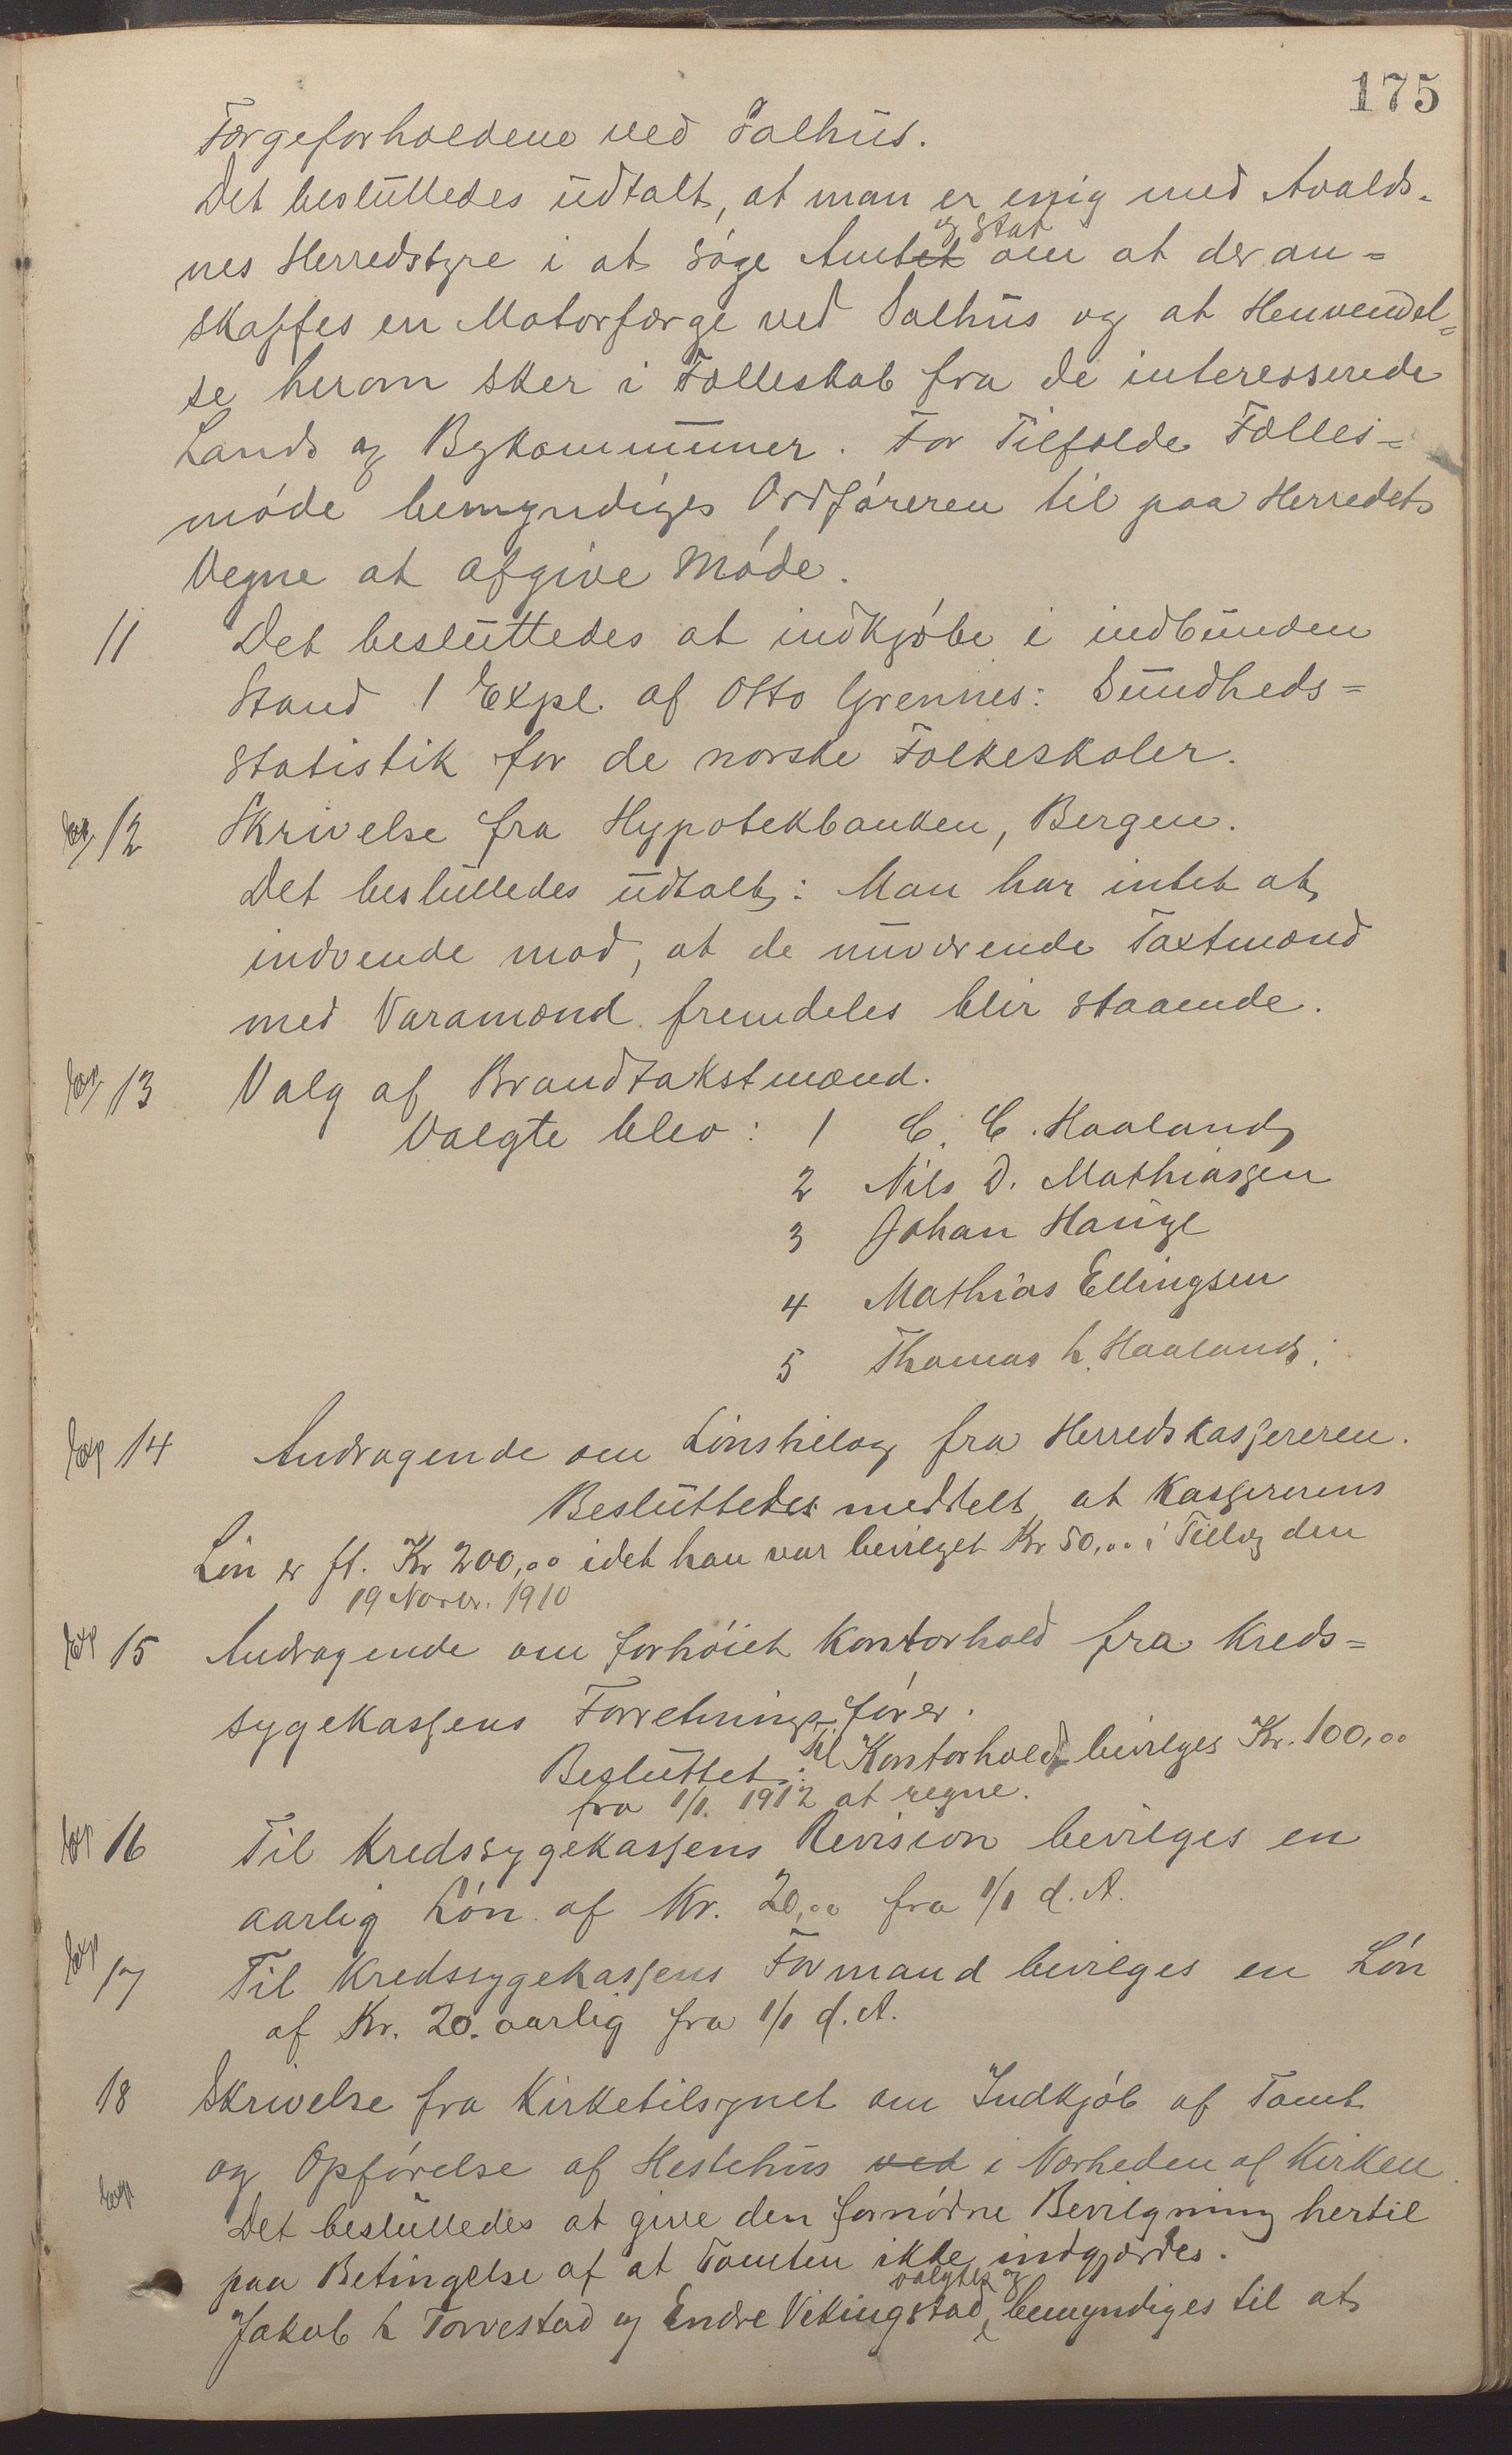 175
Færgeforholdene ved Salhus.
Det besluttedes udtalt, at man er enig med Avalds-
nes Herredstyre i at søge Amtet og Stat om at der an-
skaffes en Motorfærge ved Salhus og at Henvendel-
se herom sker i Fælleskab fra de interesserede
Lands og Bykommuner. For Tilfælde Fælles-
møde bemyndiges Ordføreren til paa Herredets
Vegne at afgive Møde.
11 Det besluttedes at indkjøbe i indbunden
Stand 1 Expl. af Otto Grennes: Sundheds-
statistik for de norske Folkeskoler.
Exp 12 Skrivelse fra Hypotekbanken, Bergen.
Det besluttedes udtalt: Man har intet at
indvende mod, at de nuværende Taxtmænd
med Varamænd fremdeles blir staaende.
Exp 13 Valg af Brandtakstmænd.
Valgte blev: 1 C. C. Haaland
2 Nils D. Mathiassen
3 Johan Hauge
4 Mathias Ellingsen
5 Thomas L. Haaland.
Exp 14 Andragende om Lønstilæg fra Herredskassereren.
Besluttedes meddelt at Kassererens
Løn er ft. Kr 200,00 idet han var bevilget Kr 50,00 i Tillæg den
19 Novbr. 1910
Exp 15 Andragende om forhøiet Kontorhold fra Kreds-
sygekassens Forretningsfører.
Besluttet: til Kontorhold bevilges Kr. 100,00
fra 1/1. 1912 at regne.
Exp 16 Til Kredssygekassens Revision bevilges en
aarlig Løn af Kr. 20,00 fra 1/1 d. A.
Exp 17 Til Kredssygekassens Formand bevilges en Løn
af Kr. 20. aarlig fra 1/1 d. A.
18 Skrivelse fra Kirketilsynet om Indkjøb af Tomt
og Opførelse af Hestehus ved i Nærheden af Kirken.
Exp Det besluttedes at give den fornødne Bevilgning hertil
paa Betingelse af at Tomten ikke indgjærdes.
Jakob L Torvestad og Endre Vikingstad valgtes og bemyndiges til at